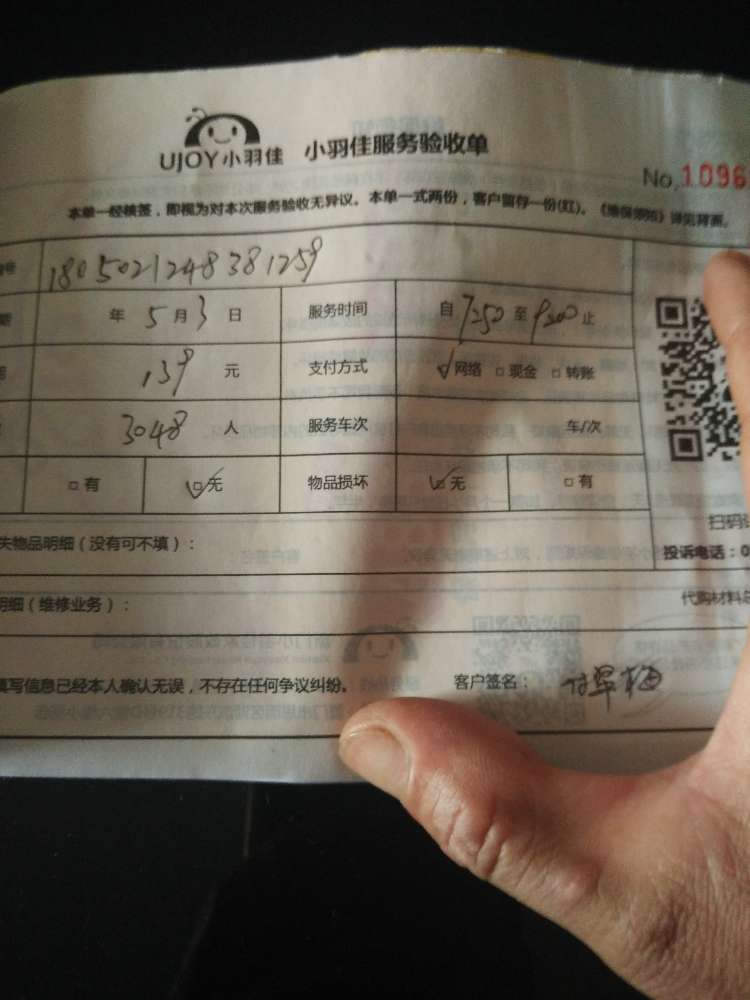 UJOY小羽佳 小羽佳服务验收单
No.1096
本单一经核签，即视为对本次服务验收无异议。本单一式两份，客户留存一份(红)。《维保须知》详见背面。
号 1805021248381259
期 年 5 月 3 日 服务时间 自 7:50 至 9:00 止
139 元 支付方式 ☑网络 □现金 □转账
3048 人 服务车次 车/次
□有 ☑无 物品损坏 ☑无 □有
扫码
失物品明细（没有可不填）： 投诉电话：0
明细（维修业务）： 代购材料总
填写信息已经本人确认无误，不存在任何争议纠纷。 客户签名：